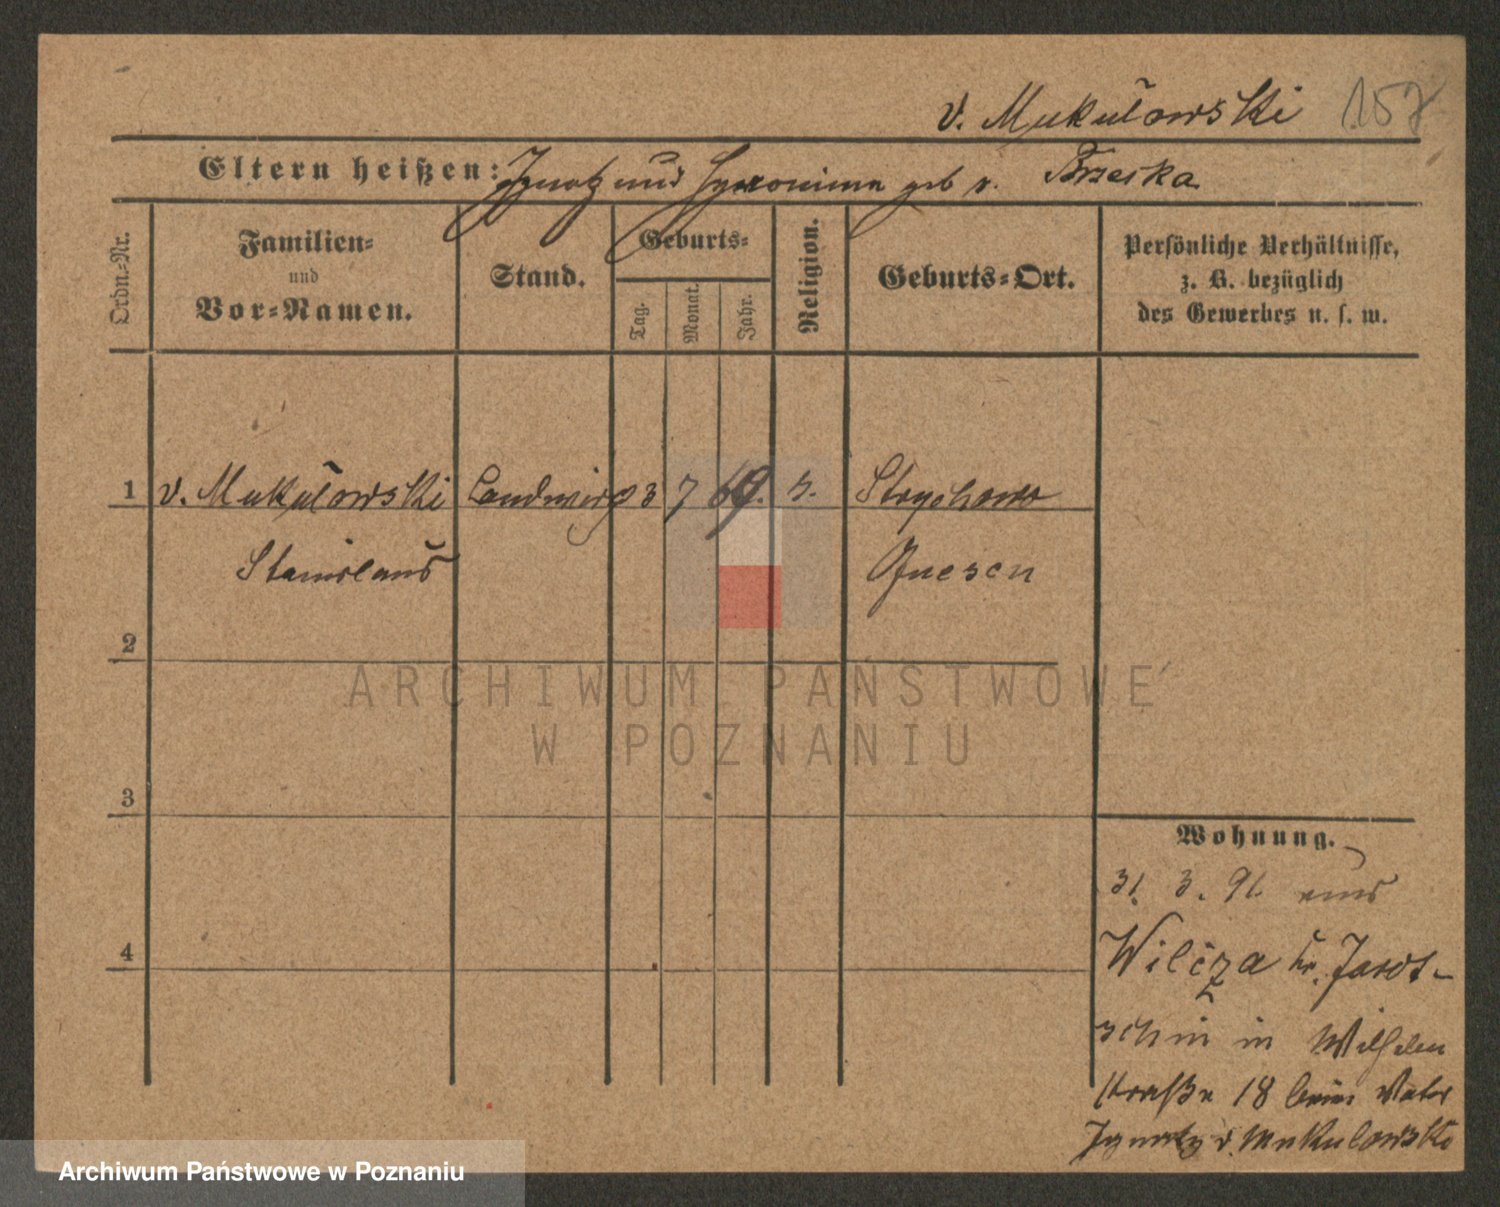 v. Mukułowski 157
Eltern heißen: Ignatz und Hyeronima geb v. Brzeska
Ordn.-Nr.
Familien-
und
Vor-Namen.
Stand.
Geburts-
Tag.
Monat.
Jahr.
Religion.
Geburts-Ort.
Persönliche Verhältnisse,
z. B. bezüglich
des Gewerbes u. s. w.
1 v. Mukułowski Landwirt 3 7 69. Strychowo
Stanislaus Gnesen
2
3
4
Wohnung.
31. 3. 91. aus
Wilcza kr. Jarot-
schin in Wilhelm
straße 18 beim Vater
Ignatz v. Mukulowski
ARCHIWUM PAŃSTWOWE
W POZNANIU
Archiwum Państwowe w Poznaniu